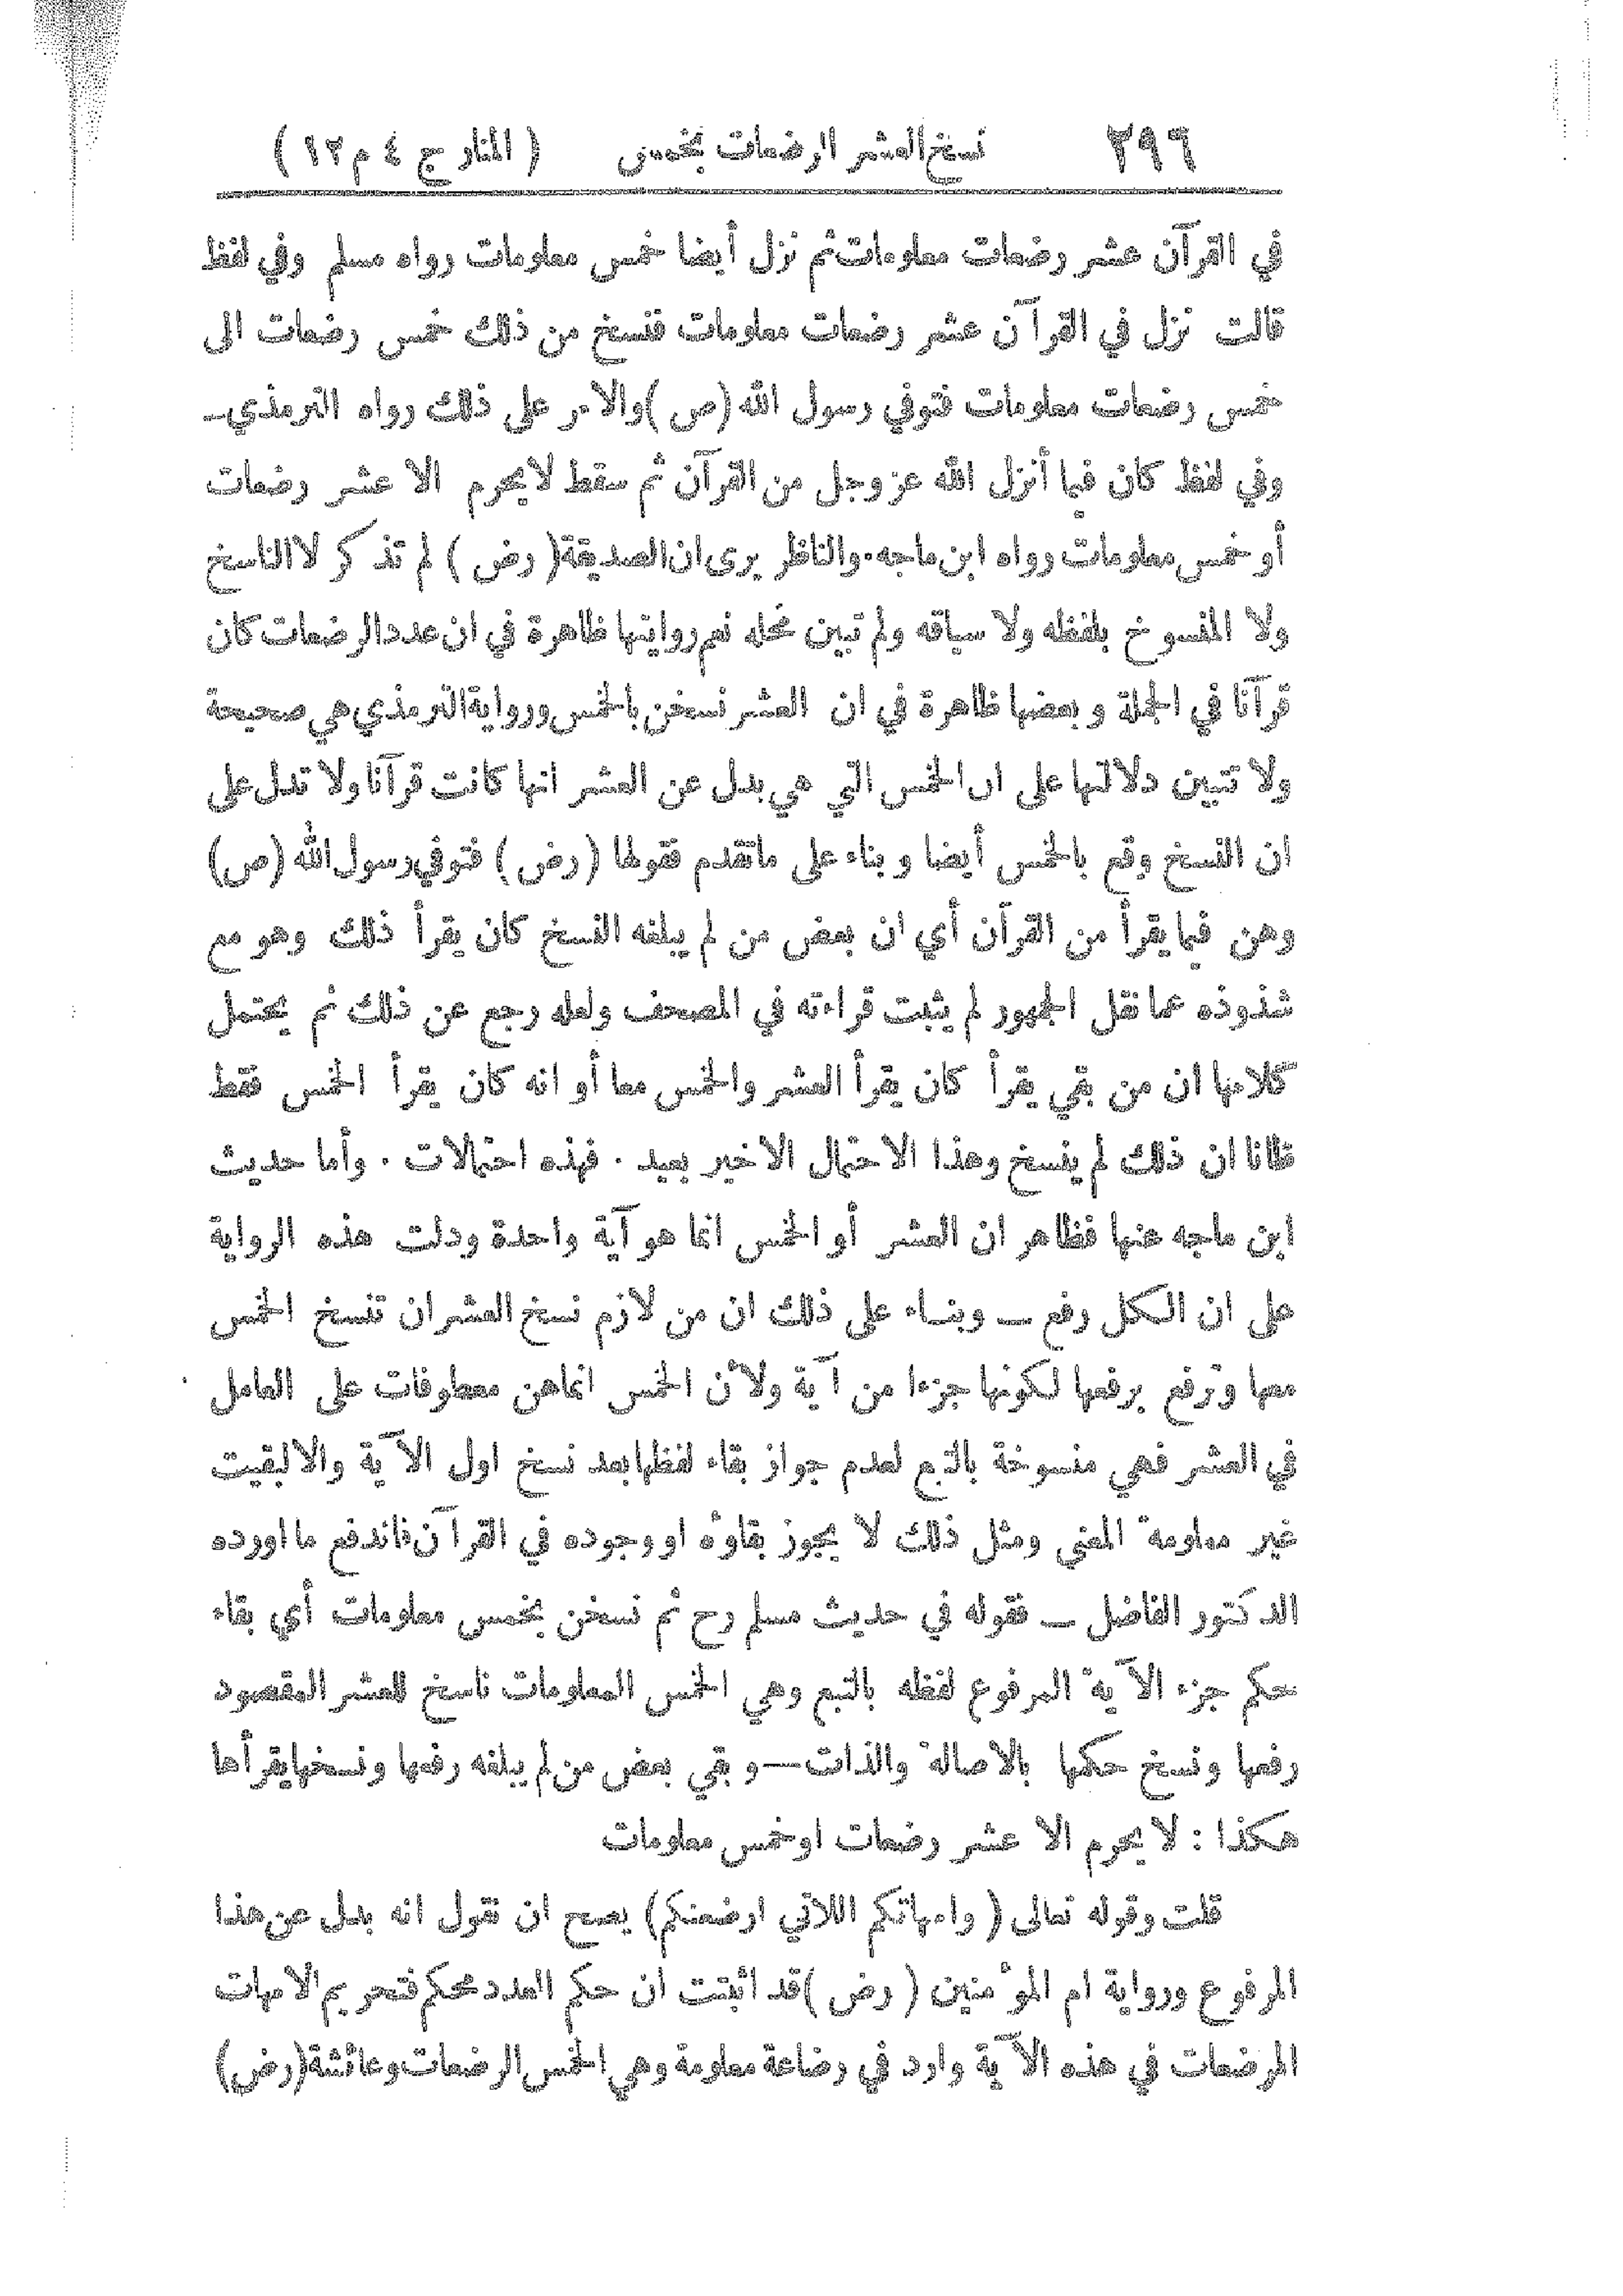 ٢٩٦ نسخ العشر الرضعات بخمس ( المنار ج ٤ م ١٢ )
في القرآن عشر رضعات معلومات ثم نزل أيضا خمس معلومات رواه مسلم وفي لفظ
قالت نزل في القرآن عشر رضعات معلومات فنسخ من ذلك خمس رضعات الى
خمس رضعات معلومات فتوفي رسول الله (ص) والامر على ذلك رواه الترمذي ـ
وفي لفظ كان فيما أنزل الله عز وجل من القرآن ثم سقط لا يحرم الا عشر رضعات
أو خمس معلومات رواه ابن ماجه . والناظر يرى ان الصديقة ( رض ) لم تذكر لا الناسخ
ولا المنسوخ بلفظه ولا سياقه ولم تبين محله نعم روايتها ظاهرة في ان عدد الرضعات كان
قرآنا في الجملة وبعضها ظاهرة في ان العشر نسخن بالخمس ورواية الترمذي هي صحيحة
ولا تتبين دلالتها على ان الخمس التي هي بدل عن العشر انها كانت قرآنا ولا تدل على
ان النسخ وقع بالخمس أيضا وبناء على ماتقدم فقولها ( رض ) فتوفي رسول الله (ص)
وهن فيما يقرأ من القرآن أي ان بعض من لم يبلغه النسخ كان يقرأ ذلك وهو مع
شذوذه عما نقل الجمهور لم يثبت قراءته في المصحف ولعله رجع عن ذلك ثم يحتمل
كلامها ان من بقي يقرأ كان يقرأ العشر والخمس معا أو انه كان يقرأ الخمس فقط
ظانا ان ذلك لم ينسخ وهذا الاحتمال الاخير بعيد . فهذه احتمالات . وأما حديث
ابن ماجه عنها فظاهر ان العشر أو الخمس انما هو آية واحدة ودلت هذه الرواية
على ان الكل رفع ـ وبناء على ذلك ان من لازم نسخ العشر ان تنسخ الخمس
معها وترفع برفعها لكونها جزءا من آية ولأن الخمس انماهن معطوفات على العامل
في العشر فهي منسوخة بالتبع لعدم جواز بقاء لفظها بعد نسخ اول الآية والا لبقيت
غير معلومة المعنى ومثل ذلك لا يجوز بقاؤه او وجوده في القرآن فاندفع ما اورده
الدكتور الفاضل ـ فقوله في حديث مسلم رح ثم نسخن بخمس معلومات أي بقاء
حكم جزء الآية المرفوع لفظه بالتبع وهي الخمس المعلومات ناسخ للعشر المقصود
رفعها ونسخ حكمها بالاصالة والذات — وبقي بعض من لم يبلغه رفعها ونسخها يقرأها
هكذا : لا يحرم الا عشر رضعات او خمس معلومات
قلت وقوله تعالى ( وامهاتكم اللاتي ارضعنكم) يصح ان نقول انه بدل عن هذا
المرفوع ورواية ام المؤمنين ( رض ) قد اثبتت ان حكم العدد محكم فتحريم الامهات
المرضعات في هذه الآية وارد في رضاعة معلومة وهي الخمس الرضعات وعائشة (رض)